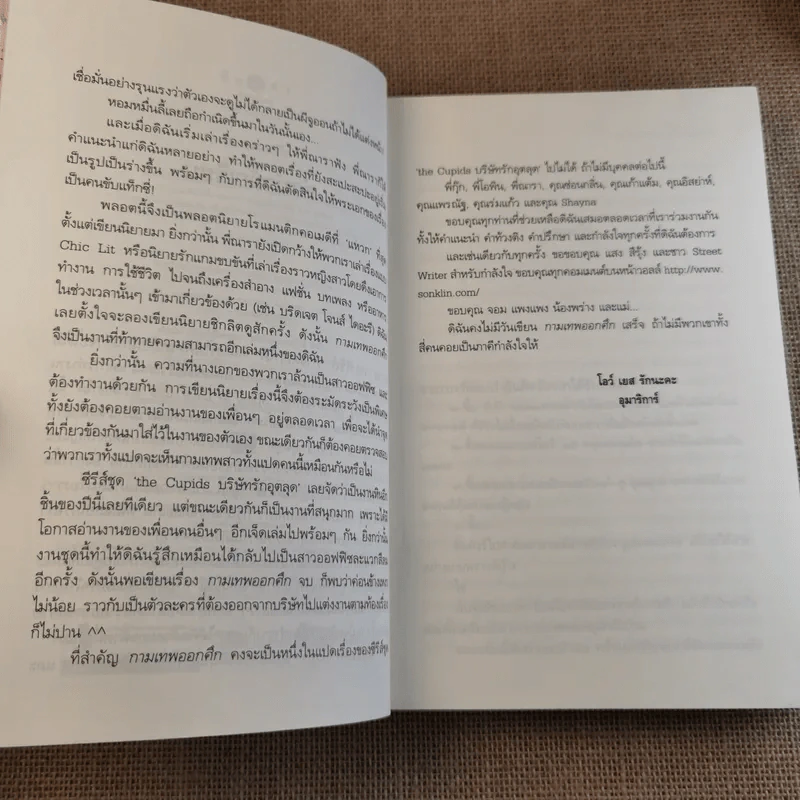 เชื่อมั่นอย่างรุนแรงว่าตัวเองจะดูไม่ได้กลายเป็นผีรูออนถ้าไม่ได้แต่งหน้า
หอมหมื่นลี้เลยถือกำเนิดขึ้นมาในวันนั้นเอง...
และเมื่อดิฉันเริ่มเล่าเรื่องคร่าวๆ ให้พี่ณาราฟัง พี่ณาราก็ให้
คำแนะนำแก่ดิฉันหลายอย่าง ทำให้พลอตเรื่องที่ยังสะเปะสะปะอยู่เริ่ม
เป็นรูปเป็นร่างขึ้น พร้อมๆ กับการที่ดิฉันตัดสินใจให้พระเอกของเรื่อง
เป็นคนขับแท็กซี่!
พลอตนี้จึงเป็นพลอตนิยายโรแมนติกคอเมดีที่ 'แหวก' ที่สุด
ตั้งแต่เขียนนิยายมา ยิ่งกว่านั้น พี่ณารายังเปิดกว้างให้พวกเราเล่าเรื่องแบบ
Chic Lit หรือนิยายรักแกมขบขันที่เล่าเรื่องราวหญิงสาวโดยดึงเอาการ
ทำงาน การใช้ชีวิต ไปจนถึงเครื่องสำอาง แฟชั่น บทเพลง หรืออาหาร
ในช่วงเวลานั้นๆ เข้ามาเกี่ยวข้องด้วย (เช่น บริดเจต โจนส์ ไดอะรี) ดิฉัน
เลยตั้งใจจะลองเขียนนิยายชิกลิตดูสักครั้ง ดังนั้น กามเทพออกศึก
จึงเป็นงานที่ท้าทายความสามารถอีกเล่มหนึ่งของดิฉัน
ยิ่งกว่านั้น ความที่นางเอกของพวกเราล้วนเป็นสาวออฟฟิซ และ
ต้องทำงานด้วยกัน การเขียนนิยายเรื่องนี้จึงต้องระมัดระวังเป็นพิเศษ
ทั้งยังต้องคอยตามอ่านงานของเพื่อนๆ อยู่ตลอดเวลา เพื่อจะได้นำจุด
ที่เกี่ยวข้องกันมาใส่ไว้ในงานของตัวเอง ขณะเดียวกันก็ต้องคอยตรวจสอบ
ว่าพวกเราทั้งแปดจะเห็นกามเทพสาวทั้งแปดคนนี้เหมือนกันหรือไม่
ซีรีส์ชุด 'the Cupids บริษัทรักอุตลุด' เลยจัดว่าเป็นงานหินอีก
ชิ้นของปีนี้เลยทีเดียว แต่ขณะเดียวกันก็เป็นงานที่สนุกมาก เพราะได้มี
โอกาสอ่านงานของเพื่อนคนอื่นๆ อีกเจ็ดเล่มไปพร้อมๆ กัน ยิ่งกว่านั้น
งานชุดนี้ทำให้ดิฉันรู้สึกเหมือนได้กลับไปเป็นสาวออฟฟิซละแวกสีลม
อีกครั้ง ดังนั้นพอเขียนเรื่อง กามเทพออกศึก จบ ก็พบว่าค่อนข้างเหงา
ไม่น้อย ราวกับเป็นตัวละครที่ต้องออกจากบริษัทไปแต่งงานตามท้องเรื่อง
ก็ไม่ปาน ^^
ที่สำคัญ กามเทพออกศึก คงจะเป็นหนึ่งในแปดเรื่องของซีรีส์ชุด
'the Cupids บริษัทรักอุตลุด' ไปไม่ได้ ถ้าไม่มีบุคคลต่อไปนี้
พี่กุ๊ก, พี่ไอพิน, พี่ณารา, คุณซ่อนกลิ่น, คุณเก้าแต้ม, คุณอิสย่าห์,
คุณแพรณัฐ, คุณร่มแก้ว และคุณ Shayna
ขอบคุณทุกท่านที่ช่วยเหลือดิฉันเสมอตลอดเวลาที่เราร่วมงานกัน
ทั้งให้คำแนะนำ คำท้วงติง คำปรึกษา และกำลังใจทุกครั้งที่ดิฉันต้องการ
และเช่นเดียวกับทุกครั้ง ขอขอบคุณ แสง สีรุ้ง และชาว Street
Writer สำหรับกำลังใจ ขอบคุณทุกคอมเมนต์บนหน้าวอลล์ http://www.
sonklin.com/
ขอบคุณ จอม แพงแพง น้องพร่าง และแม่...
ดิฉันคงไม่มีวันเขียน กามเทพออกศึก เสร็จ ถ้าไม่มีพวกเขาทั้ง
สี่คนคอยเป็นภาคีกำลังใจให้
โลว์ เยส รักนะคะ
อุมาริการ์